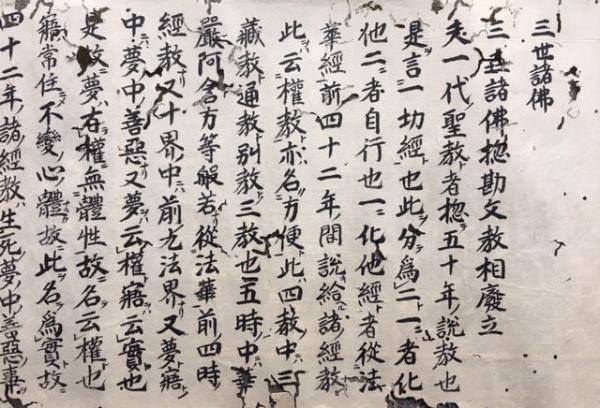 三世諸佛
三世諸佛惣勘文教相廢立
夫一代聖教者惣五十年說教也
是言一切經也此分爲二一者化
他二者自行也一化他經者從法
華經前四十二年間說給諸經教
此云權教亦名方便此四教中三
藏教通教別教三教也五時中華
嚴阿含方等般若從法華前四時
經教又十界中前九法界又夢寤
中夢中善惡又夢云權寤云實也
是故夢有權無體性故名云權也
寤常住不變心體故此名爲實故
四十二年諸經教生死夢中善惡事